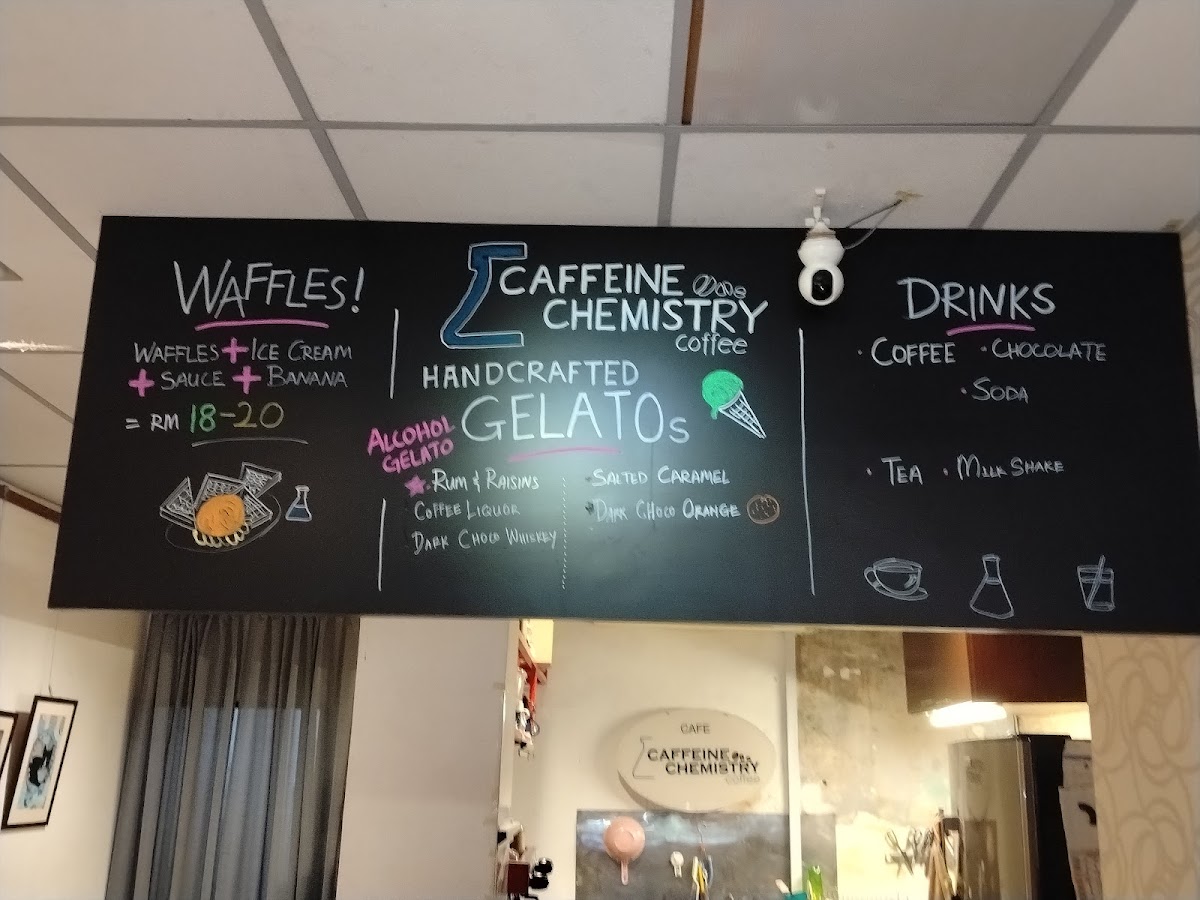 WAFFLES!
WAFFLES + ICE CREAM
+ SAUCE + BANANA
= RM 18-20
CAFFEINE
CHEMISTRY
coffee
HANDCRAFTED
GELATOs
ALCOHOL
GELATO
RUM & RAISINS
COFFEE LIQUOR
DARK CHOCO WHISKEY
SALTED CARAMEL
DARK CHOCO ORANGE
DRINKS
· COFFEE · CHOCOLATE
· SODA
· TEA · MILK SHAKE
CAFE
CAFFEINE
CHEMISTRY
coffee